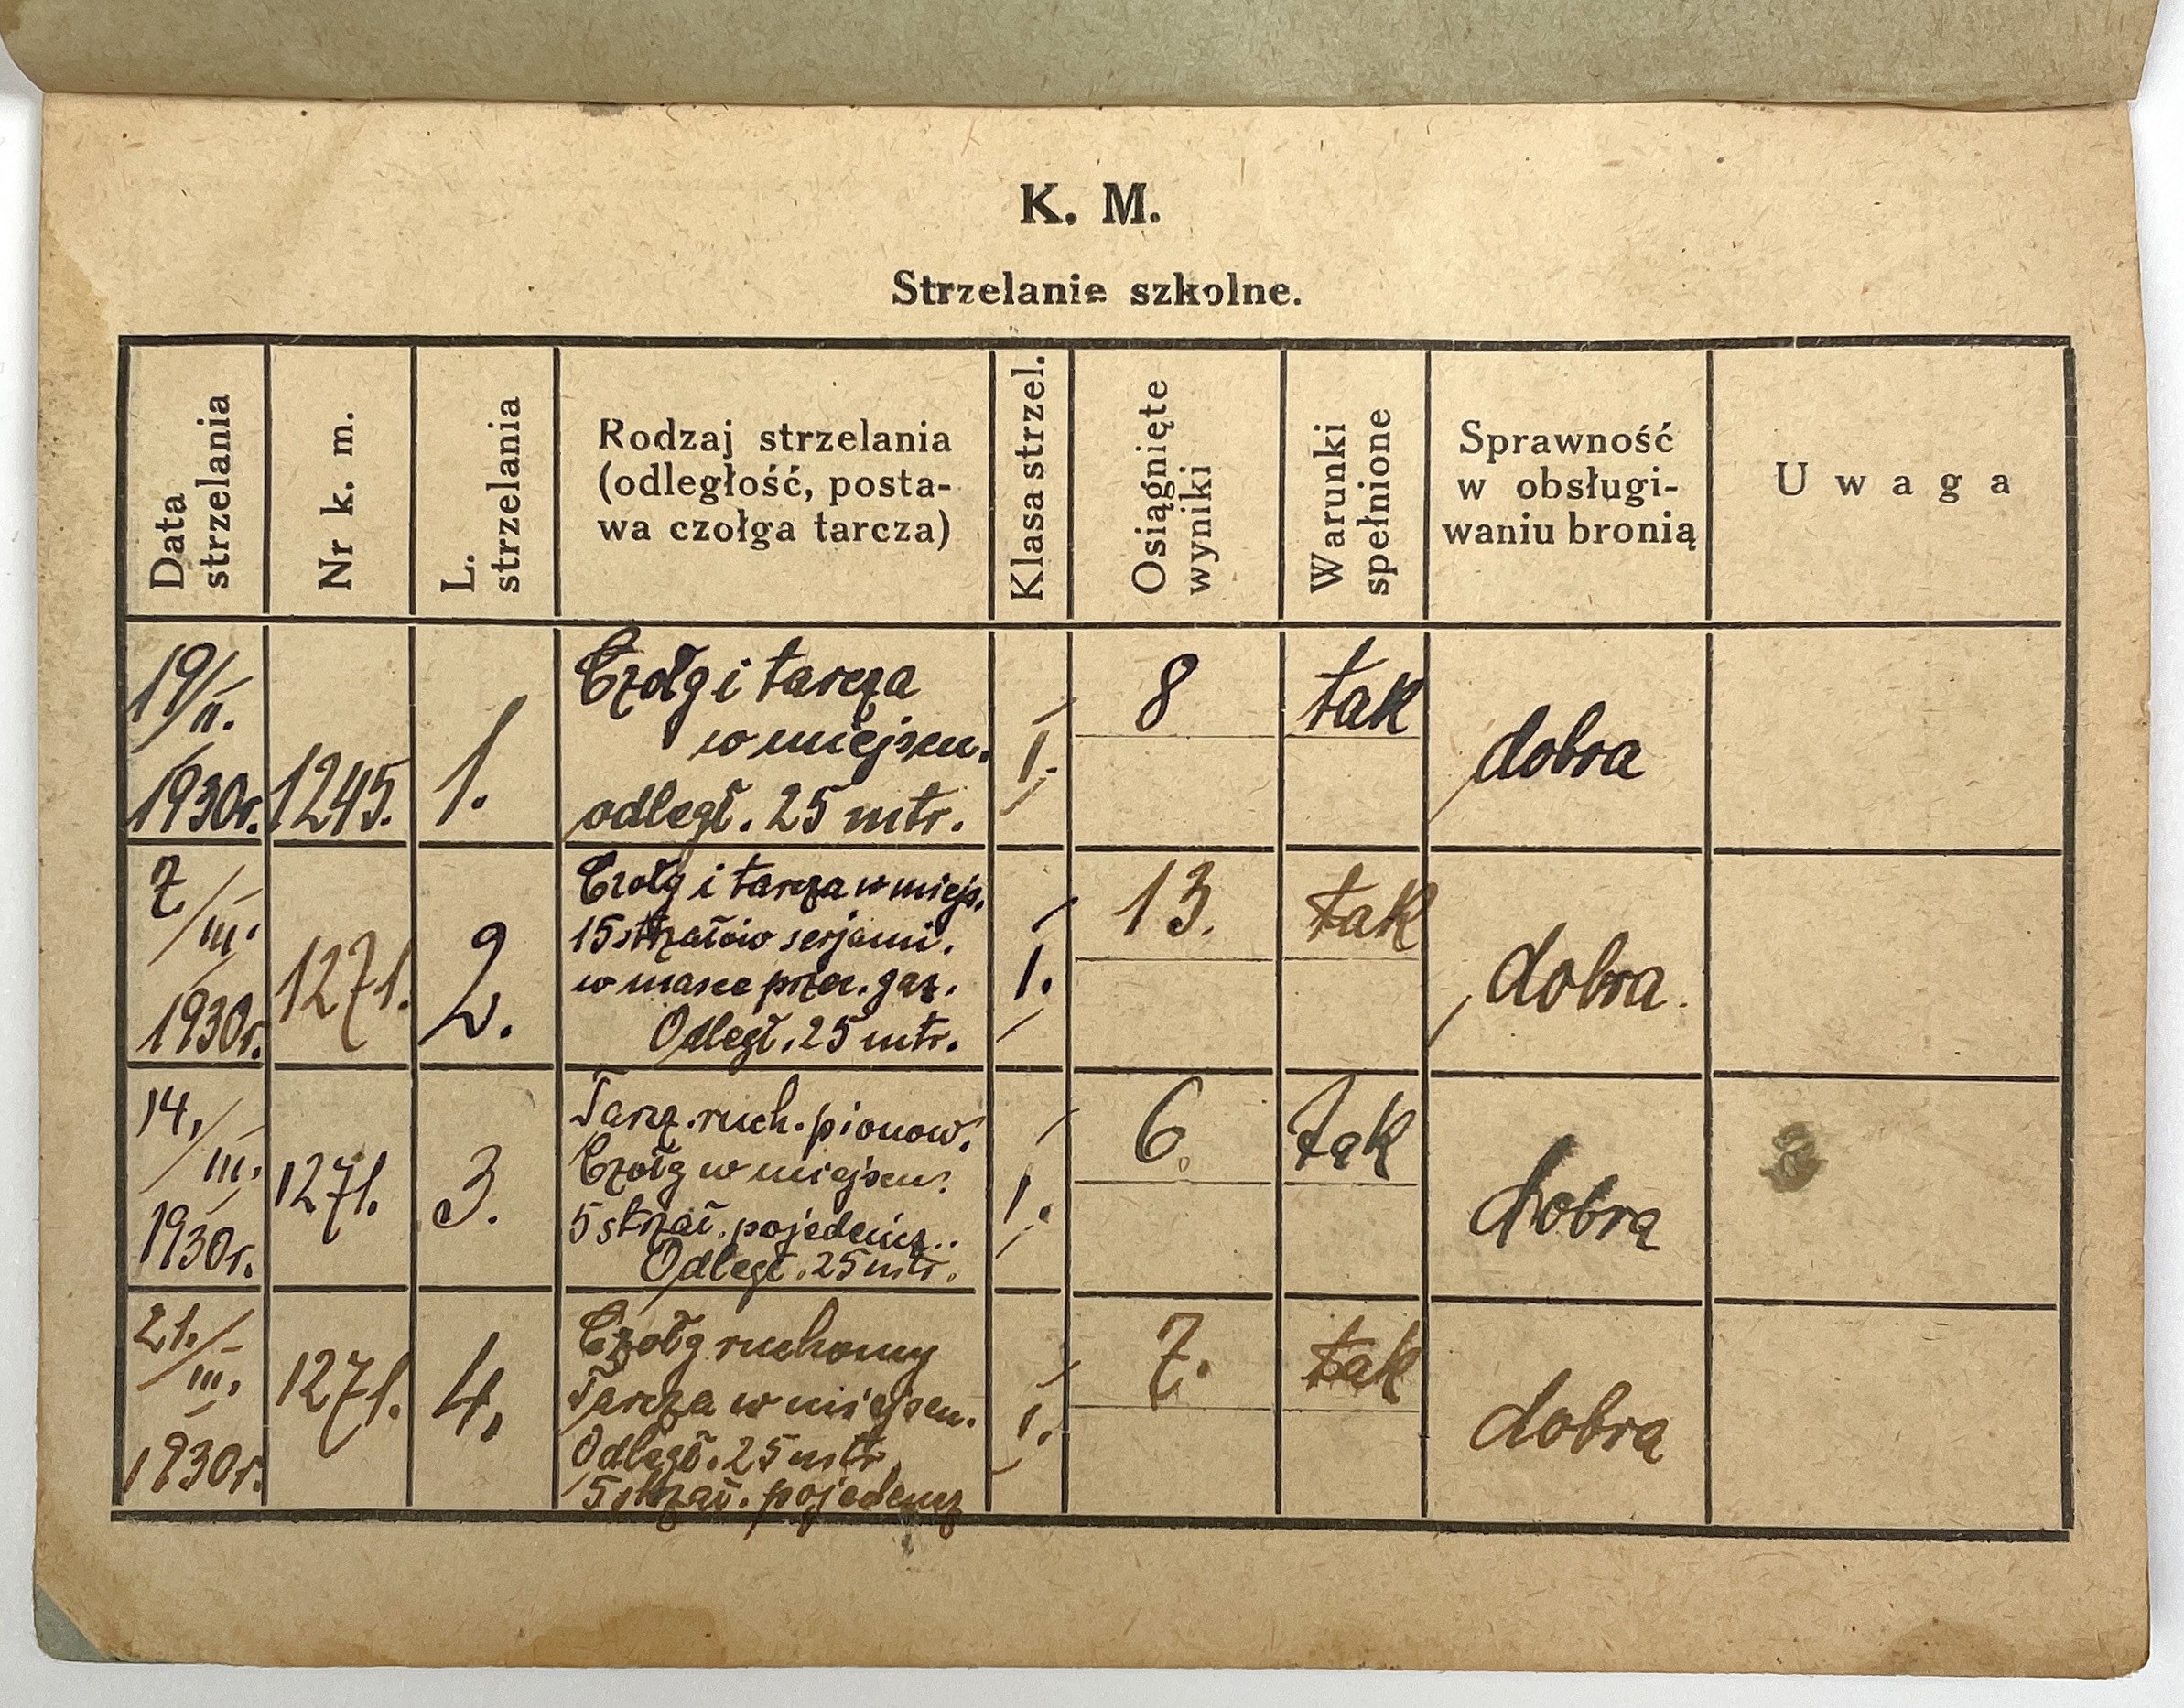 K. M.
Strzelanie szkolne.
Data
strzelania
Nr k. m.
L.
strzelania
Rodzaj strzelania
(odległość, posta-
wa czołga tarcza)
Klasa strzel.
Osiągnięte
wyniki
Warunki
spełnione
Sprawność
w obsługi-
waniu bronią
Uwaga
19/II.
1930r.
1245.
1.
Czołg i tarcza
w miejscu.
odległ. 25 mtr.
I.
8
tak
dobra
7/III.
1930r.
1271.
2.
Czołg i tarcza w miejs.
15 strzałów serjami.
w masce przec. gaz.
Odległ. 25 mtr.
1.
13.
tak
dobra.
14./III.
1930r.
1271.
3.
Tarcz. ruch. pionow.
Czołg w miejscu.
5 strzał. pojedeńcz..
Odległ. 25 mtr.
1.
6.
tak
dobra
21./III.
1930r.
1271.
4.
Czołg ruchomy
Tarcza w miejscu.
Odległ. 25 mtr.
5 strzał. pojedencz
1.
7.
tak
dobra